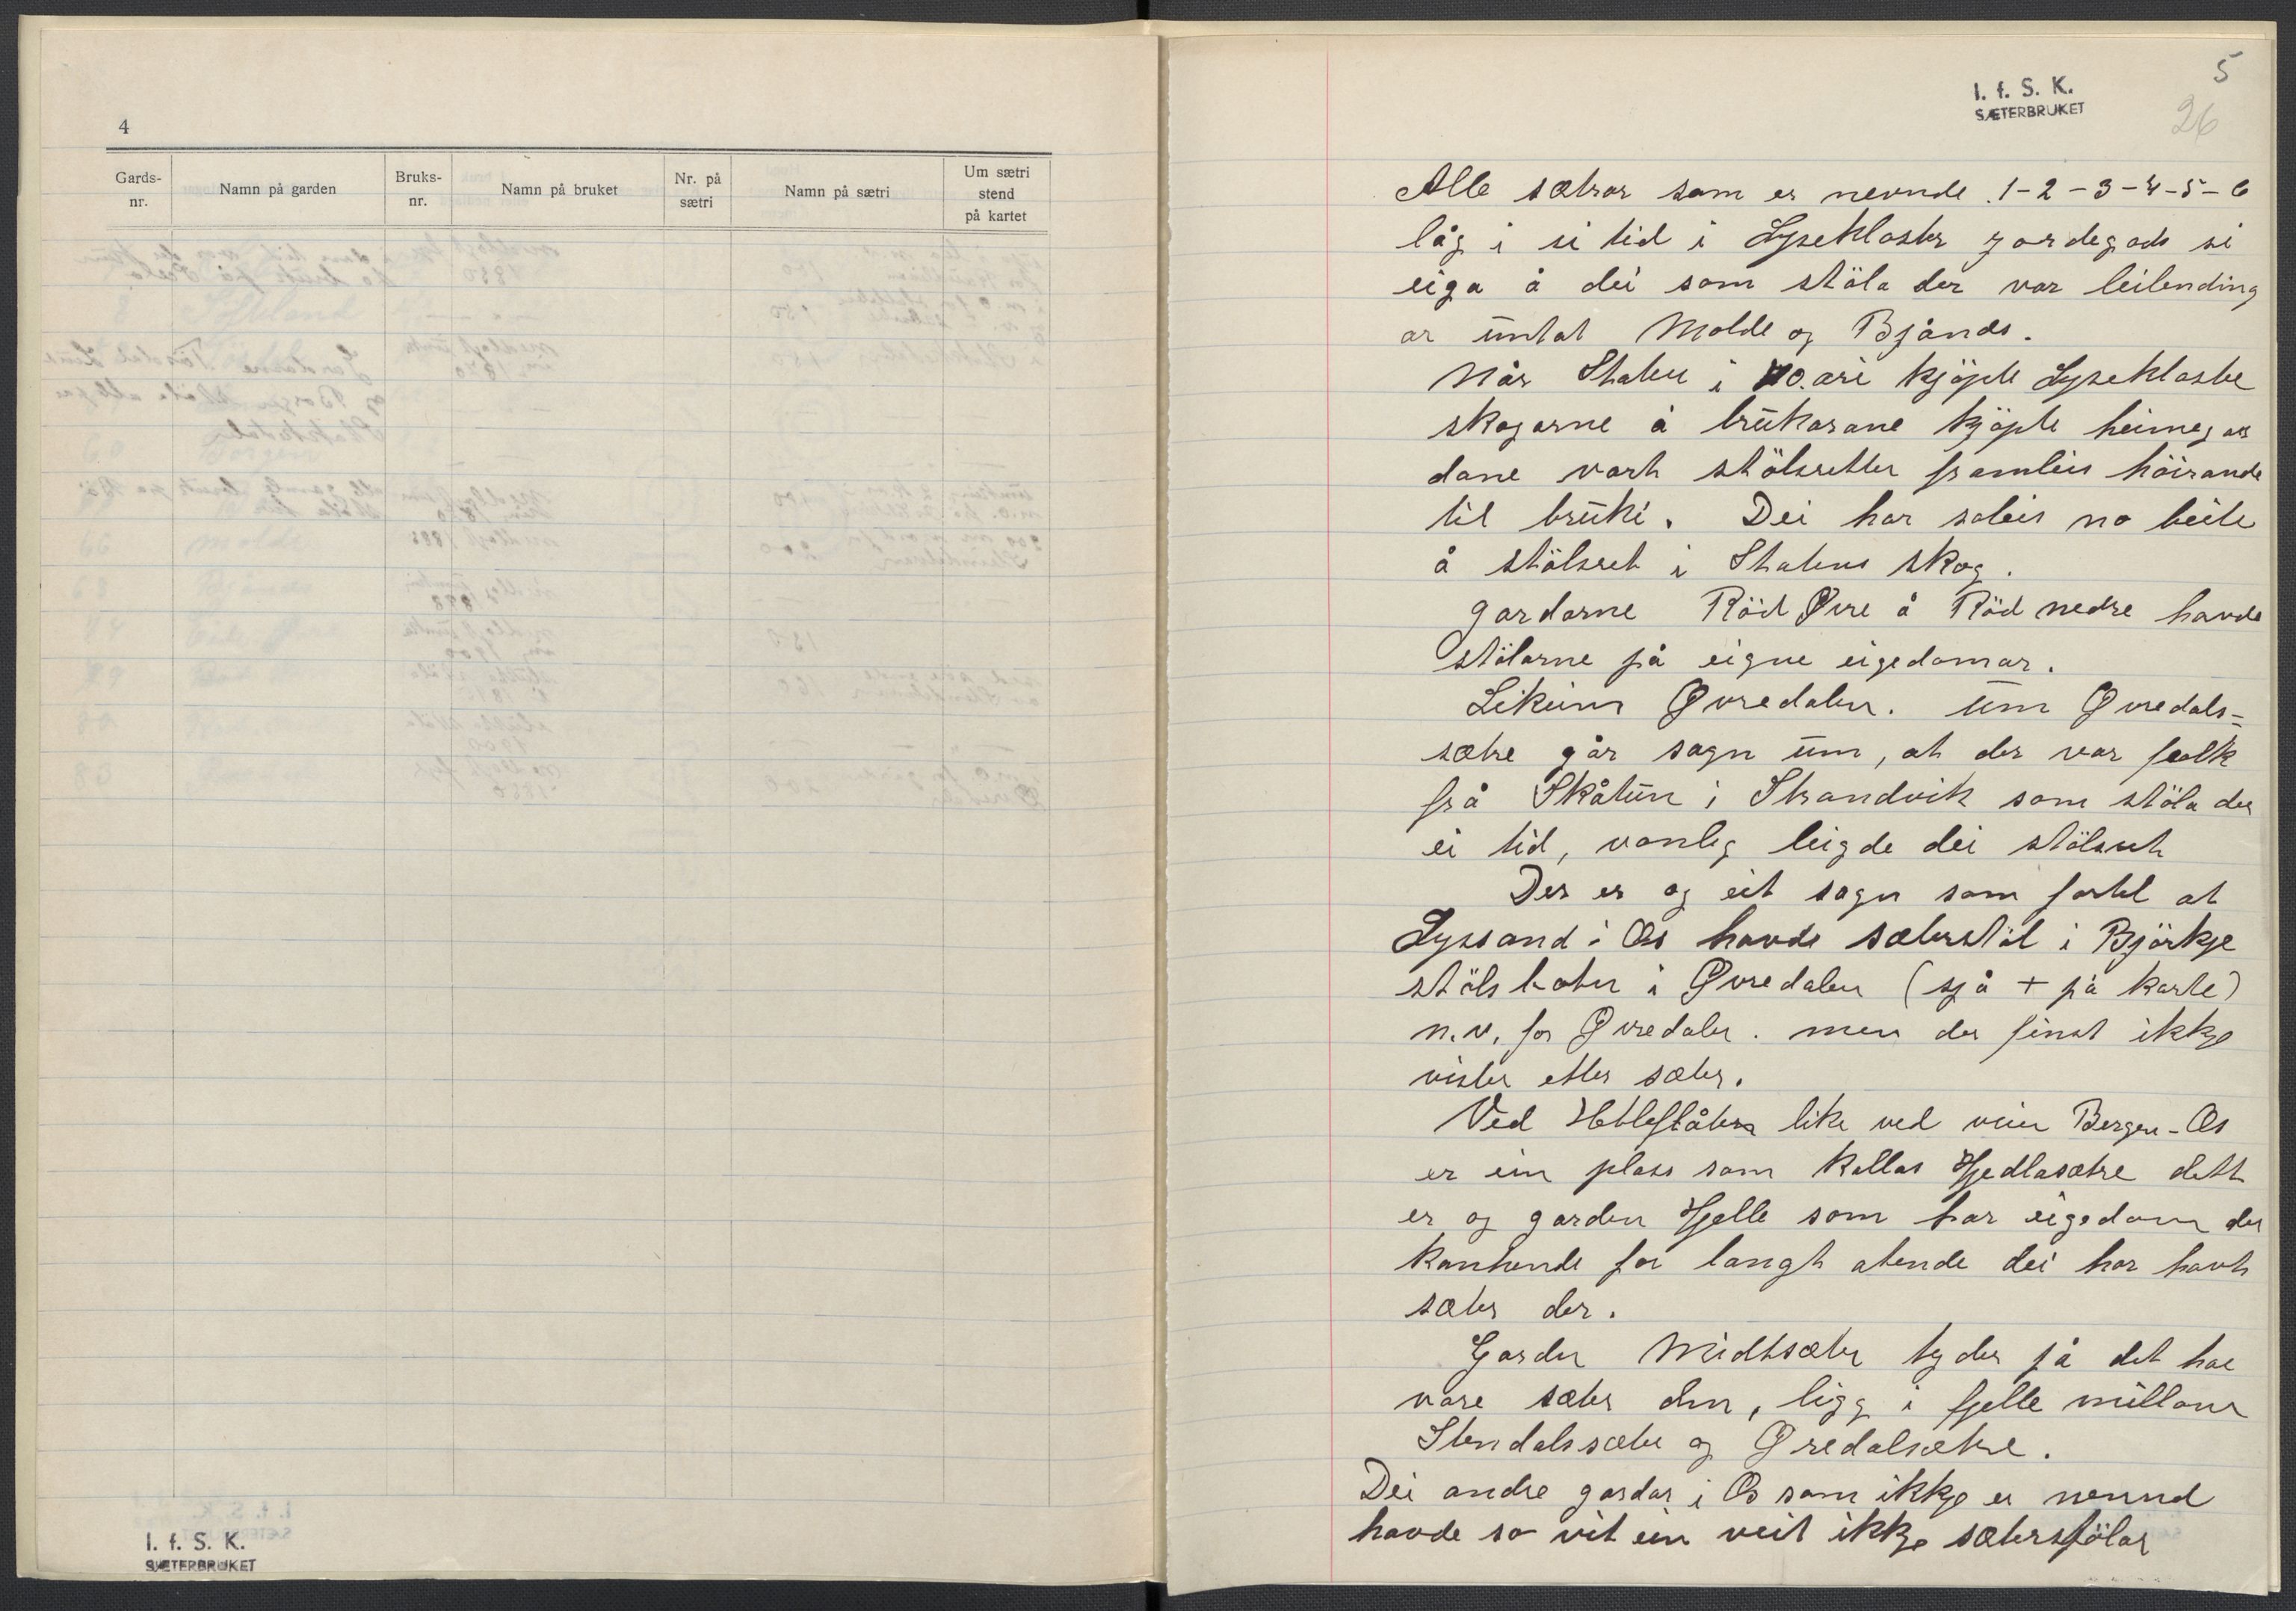 4
Gards-
nr.
Namn på garden
Bruks-
nr.
Namn på bruket
Nr. på
sætri
Namn på sætri
Um sætri
stend
på kartet
I. f. S. K.
SÆTERBRUKET
5
I. f. S. K.
SÆTERBRUKET
26
Alle sætrar som er nevnde. 1-2-3-4-5-6
låg i si tid i Lysekloster jordegods si
eiga å dei som stöla der var leilending
ar untat Molde og Bjånes.
Når Staten i 70.åri kjöpte Lysekloster
skogarne å brukarane kjöpte heimegar
dane vart stölsretten framleis höirande
til bruki. Dei har soleis no beite
å stölsret i Statens skog.
Gardarne Röd Øvre å Röd nedre havde
stölarne på eigne eigedomar.
Likeins Øvredalen. Um Øvredals-
sætre går sagn um, at der var folk
frå Skåtun i Strandvik som stöla der
ei tid, vanleg leigde dei stölsret
Der er og eit sagn som fortel at
Lyssand i Os havde sæterstöl i Björkje
stölsbotn i Øvredalen (sjå + på karte)
n.v. for Øvredalen. men der finst ikkje
vister etter sæter.
Ved Hetleflåten like ved veien Bergen-Os
er ein plass som kallas Hjedlasætre dett
er og garden Hjelle som har eigedom der
kanhende for langt atende dei har havt
sæter der.
Garden Midtsæter tyder på det har
vore sæter den, ligg i fjelle millom
Stendalssæter og Øredalsætre.
Dei andre gardar i Os som ikkje er nevnd
havde so vit ein veit ikkje sæterstölar